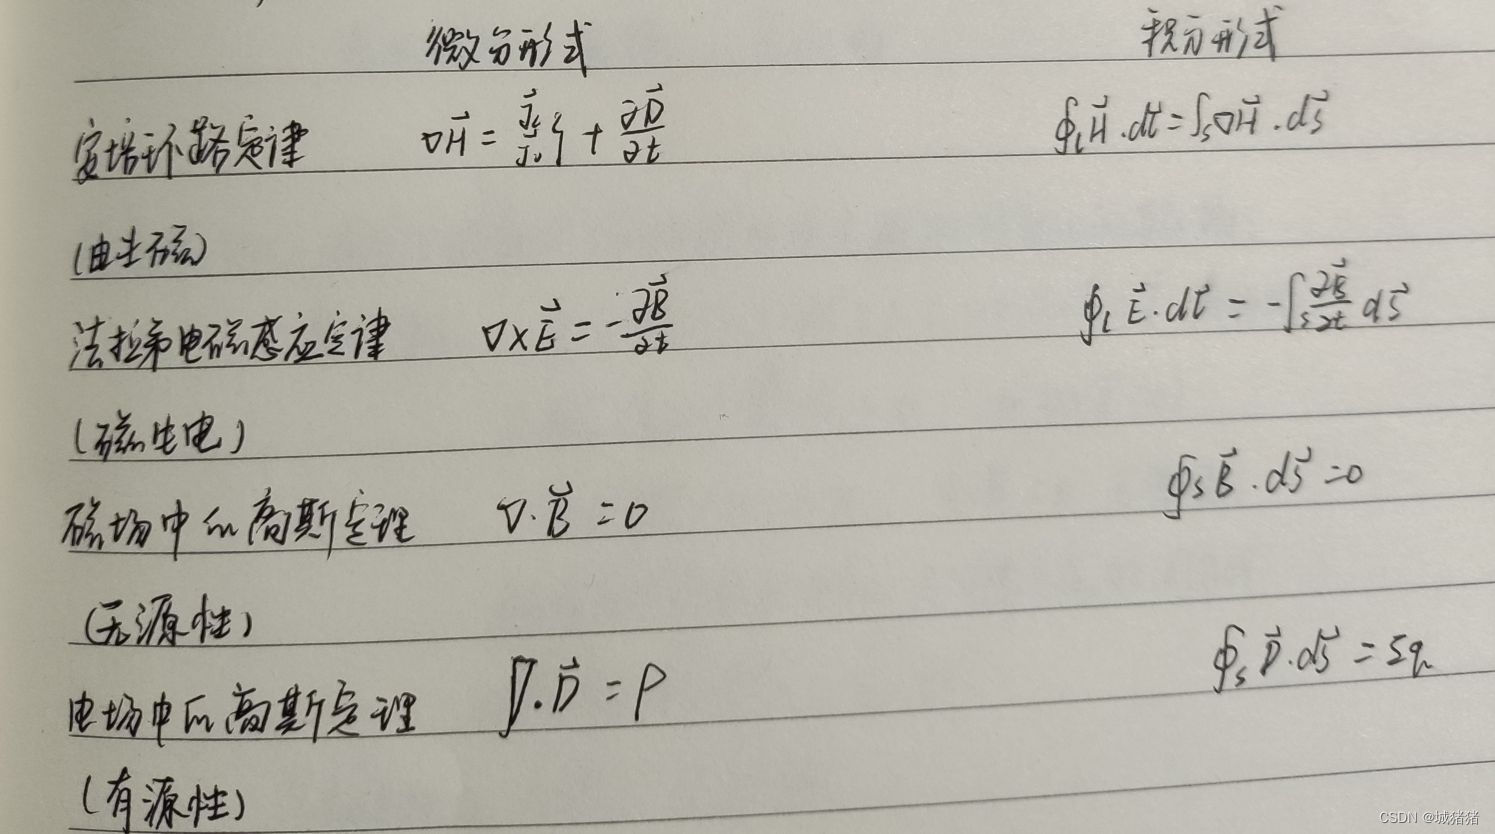 微分形式 积分形式
安培环路定律 ∇H⃗ = J⃗c J⃗v } + ∂D⃗/∂t ∮l H⃗ · dl⃗ = ∫s ∇H⃗ · dS⃗
(电生磁)
法拉第电磁感应定律 ∇×E⃗ = -∂B⃗/∂t ∮l E⃗ · dl⃗ = -∫s ∂B⃗/∂t dS⃗
(磁生电)
磁场中的高斯定理 ∇·B⃗ = 0 ∮s B⃗ · dS⃗ = 0
(无源性)
电场中的高斯定理 ∇·D⃗ = ρ ∮s D⃗ · dS⃗ = Σq
(有源性)
CSDN @城猪猪